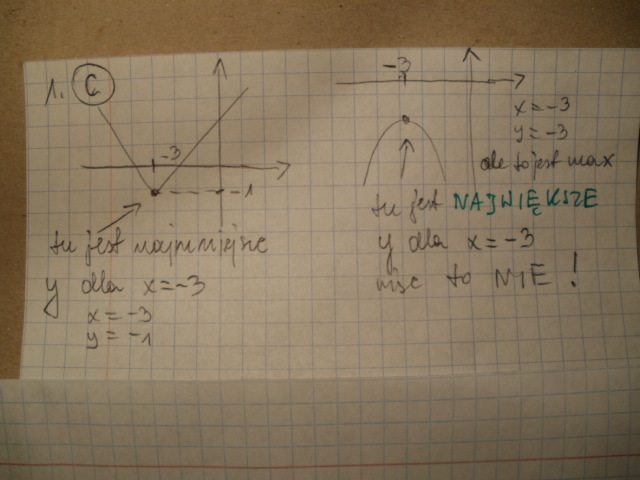 1. C
-3
-1
tu jest najmniejsze
y dla x = -3
x = -3
y = -1
-3
x = -3
y = -3
ale to jest max
tu jest NAJWIĘKSZE
y dla x = -3
więc to NIE !